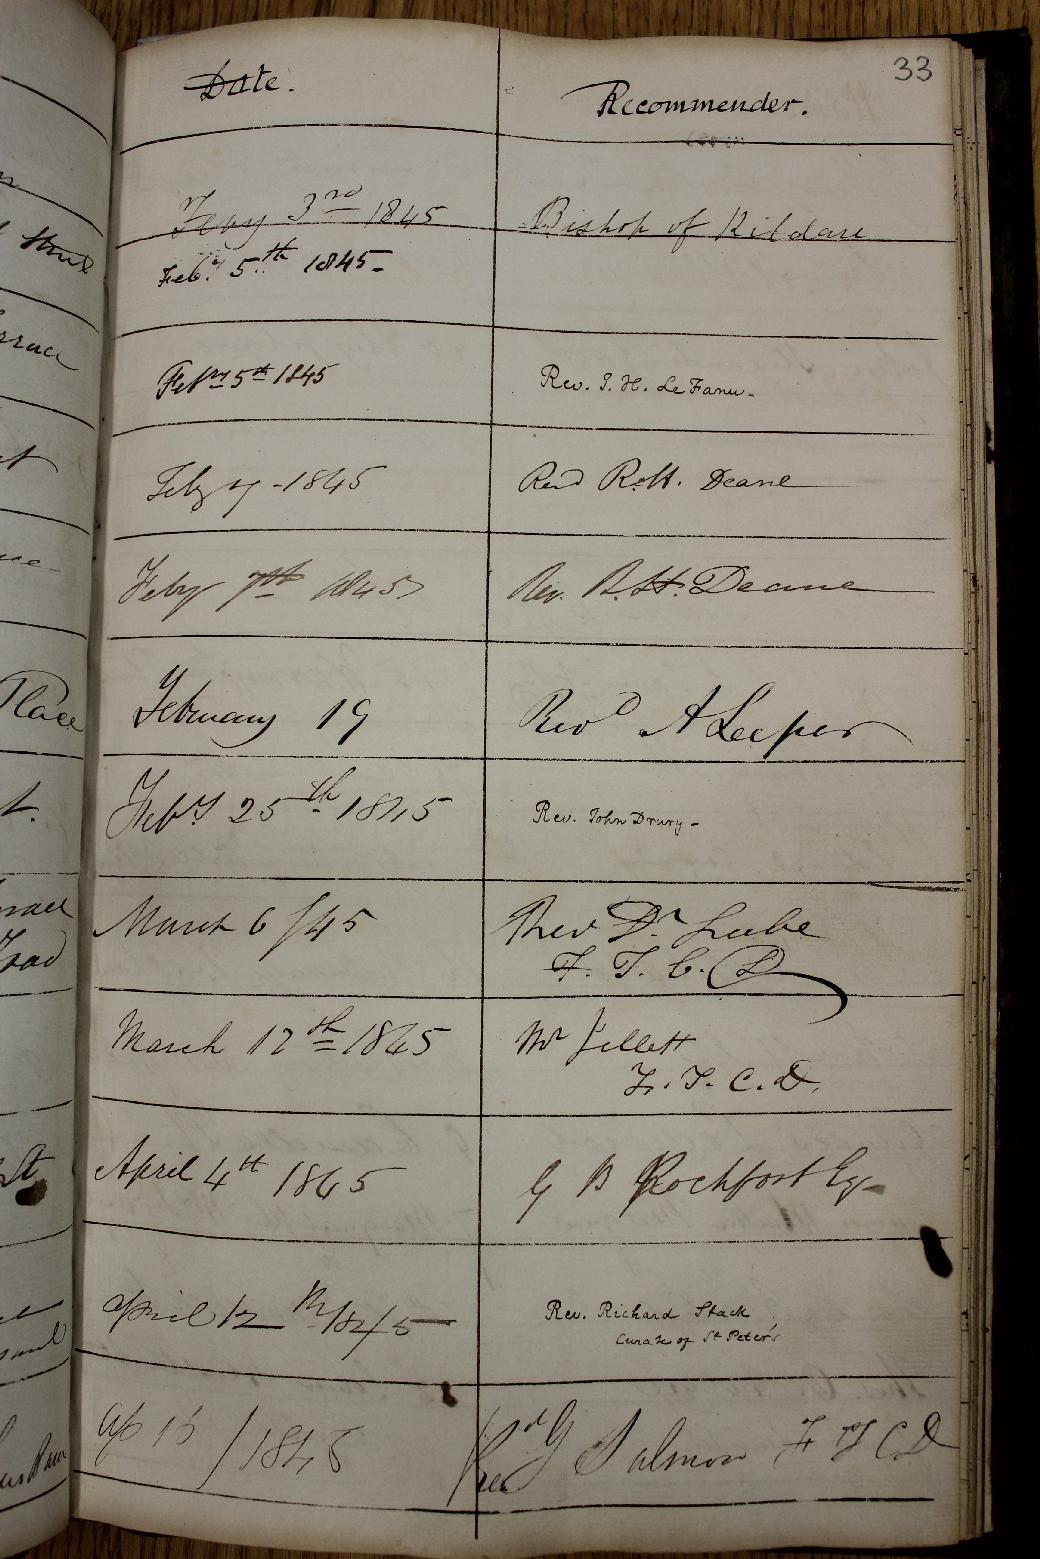 33
Date. Recommender.
Feby 3rd 1845 Bishop of Kildare
Feby. 5th 1845-
Feby 5th 1845 Rev. J. H. LeFanu-
Feby 7-1845 Revd R. H. Deane
Feby 7th 1845 Rev. R. H. Deane
February 19 Revd A Leeper
Feby 25th 1845 Rev. John Drury-
March 6/45 Revd Dr Luke
F. T. C. D
March 12th 1845 Mr Jellett
F. T. C. D.
April 4th 1845 G B Rochfort Esq-
April 12th 1845 Rev. Richard Stack
Curate of St Peter's
Ap 15/1845 Revd G Salmon F T C D
Street
Terrace
Place
St.